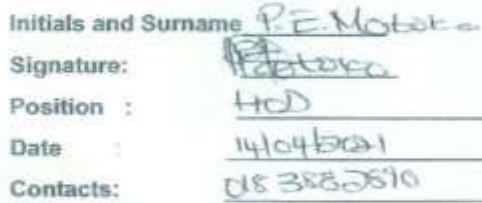 Initials and Surname P.E. Motoko
Signature:
Position : HOD
Date : 14/04/2021
Contacts: 018 3882870